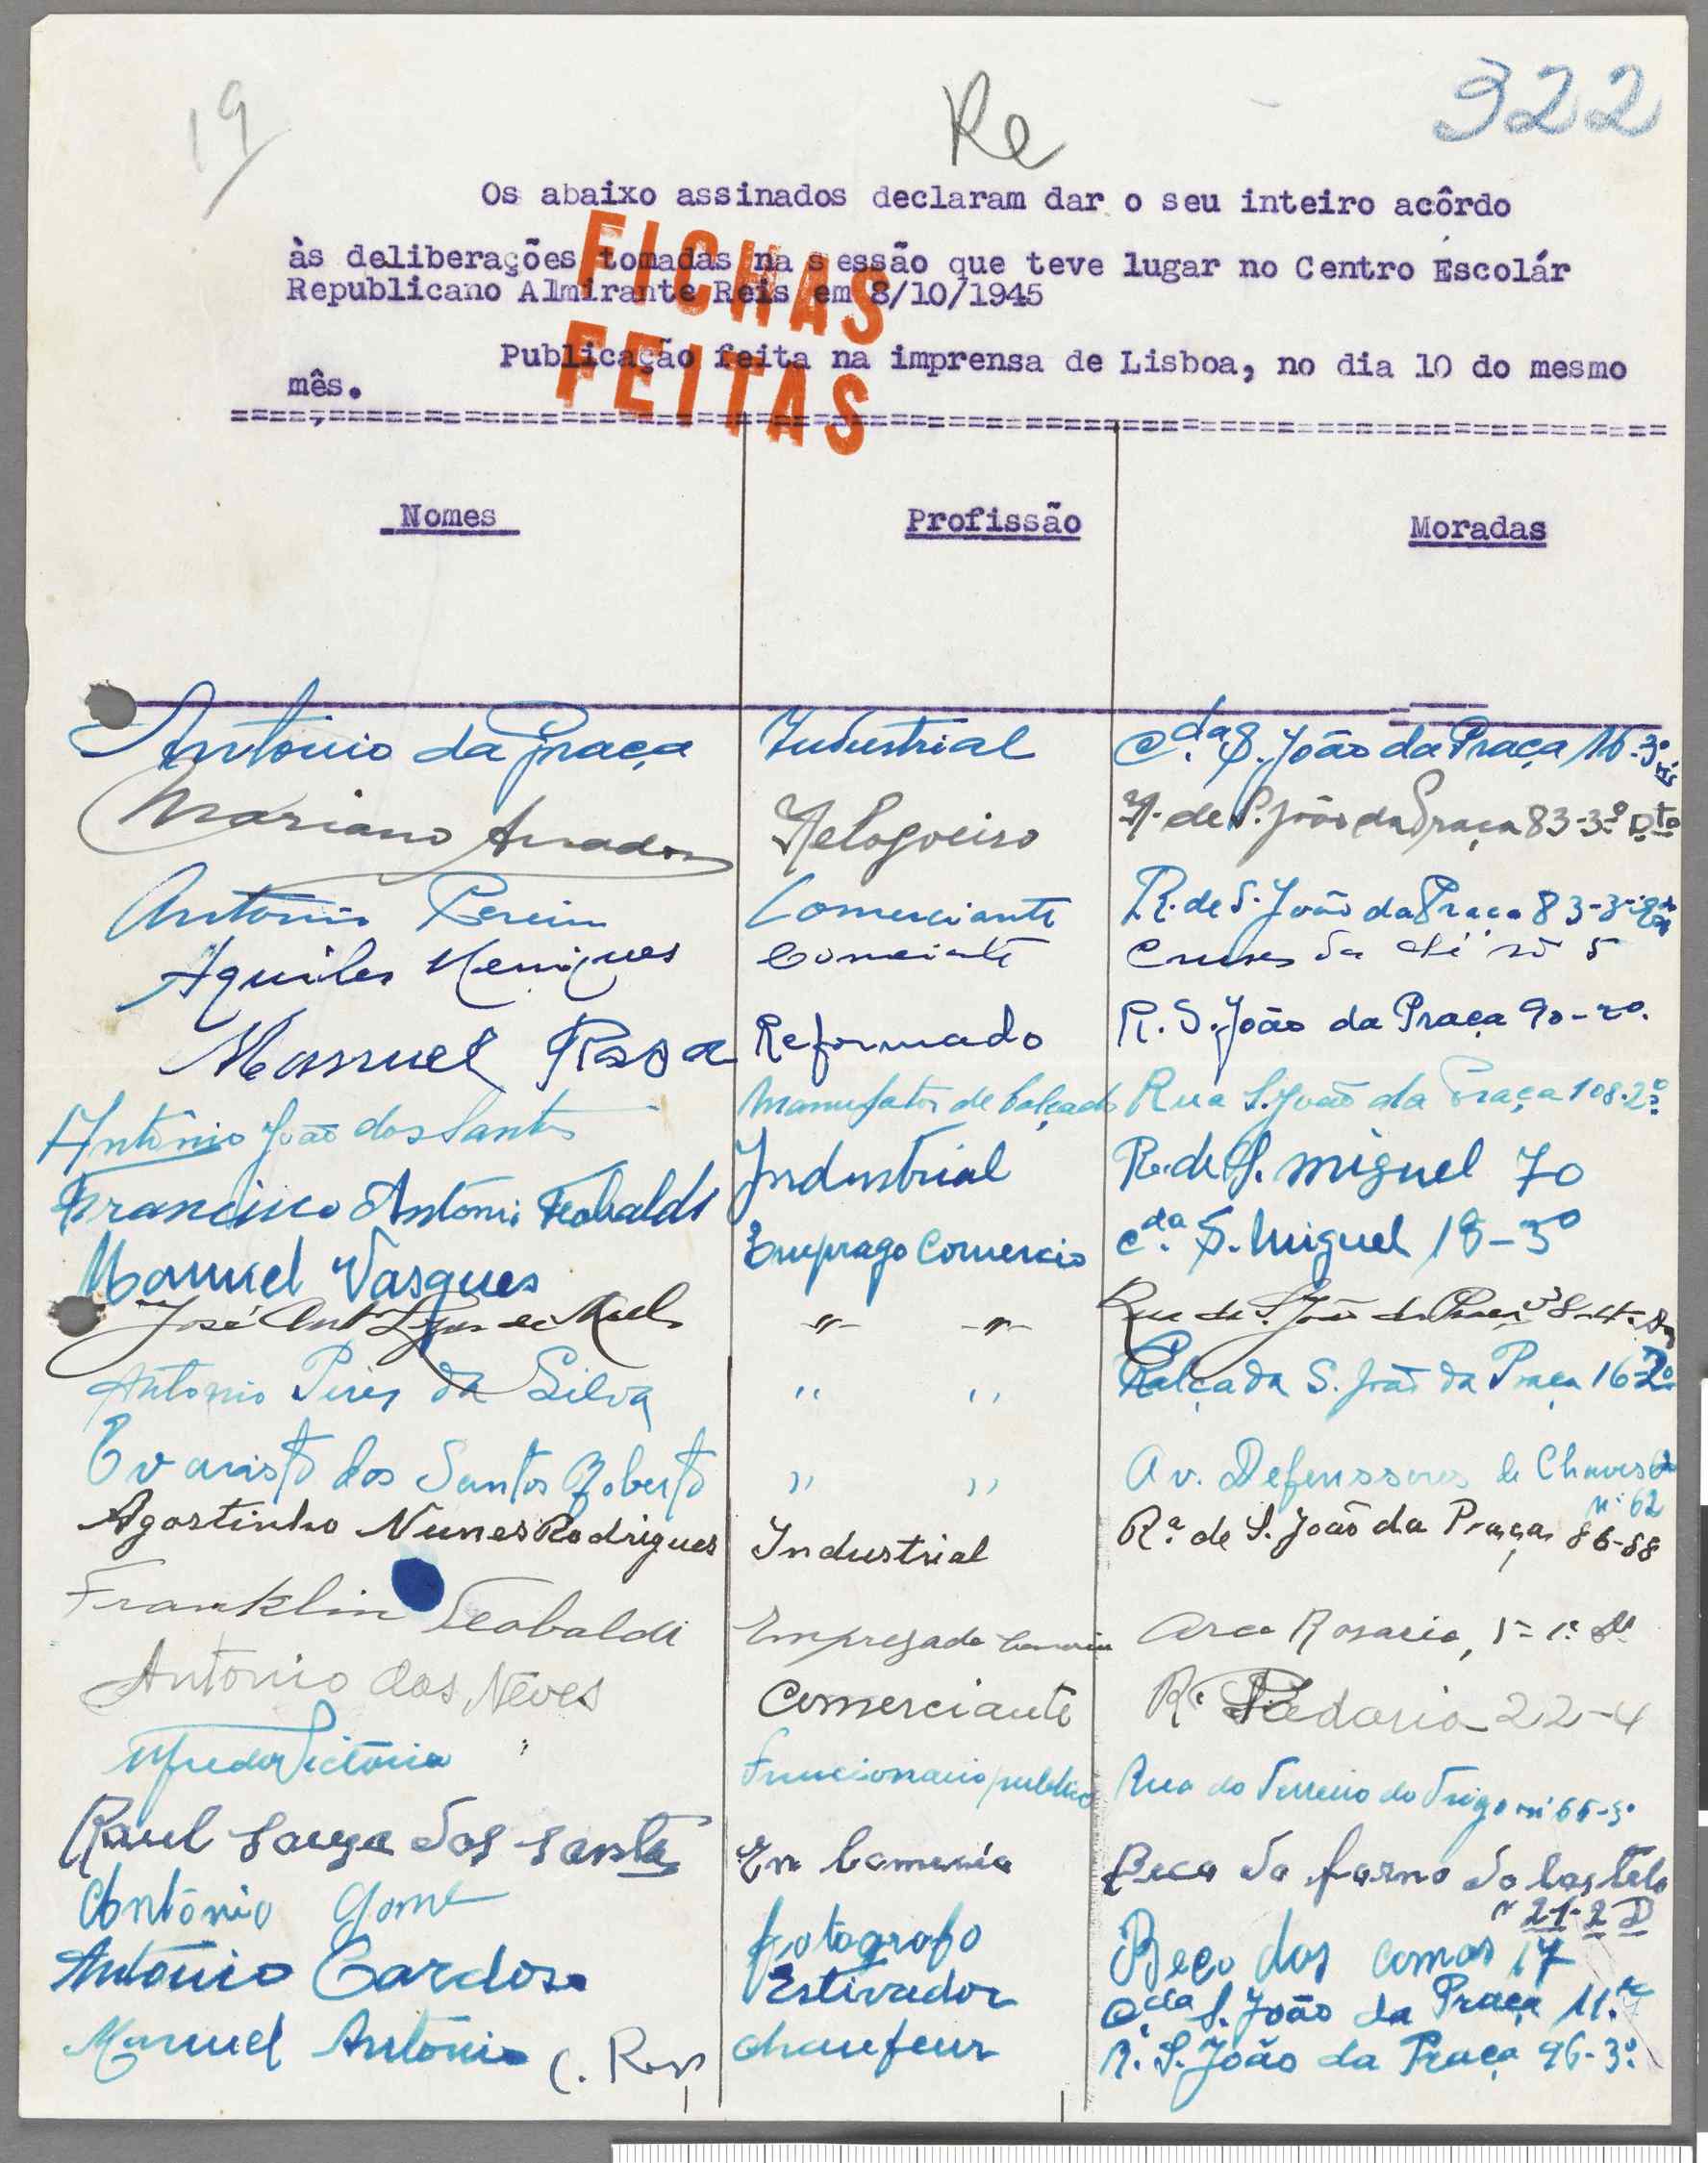 19
Re
322
Os abaixo assinados declaram dar o seu inteiro acôrdo
às deliberações tomadas na sessão que teve lugar no Centro Escolár
Republicano Almirante Reis em 8/10/1945
FICHAS
FEITAS
Publicação feita na imprensa de Lisboa, no dia 10 do mesmo
mês.
Nomes Profissão Moradas
António da Graça Industrial C.da S. João da Praça 16-3º
Mariano Amador Relogoeiro R. de S. João da Praça 83-3º Dto
António Pereira Comerciante R. de S. João da Praça 83-3º
Aquiles Henriques Comerciante Cruzes da Sé nº 5
Manuel Rosa Reformado R. S. João da Praça 90-2º.
António João dos Santos Manufator de Calçado Rua S. João da Praça 108-2º
Francisco António Teobaldi Industrial R. de S. Miguel 70
Manuel Vasques Emprago Comercio C.da S. Miguel 18-3º
José Ant -"- -"- Rua de S. João da Praça
António Pires da Silva ,, ,, Calçada S. João da Praça 16-2º
Evaristo dos Santos Roberto ,, ,, Av. Defenssores de Chaves
nº 62
Agostinho Nunes Rodrigues Industrial R.ª de S. João da Praça 86-88
Franklin Teobaldi Empregado Comercio Arco Rosario, 5-1º
António das Neves Comerciante R. Padaria 22-4
Alfredo Victória Funcionario publico Rua do Terreiro do Trigo nº 66-3º
Raul Souza dos Santos Em Comercio Beco do forno do Castelo
nº 21-2 D
António Gomes fotografo Beco dos cornos 17
António Cardoso Estivador C.da S. João da Praça 11
Manuel António C. Rosa chaufeur R. S. João da Praça 96-3º